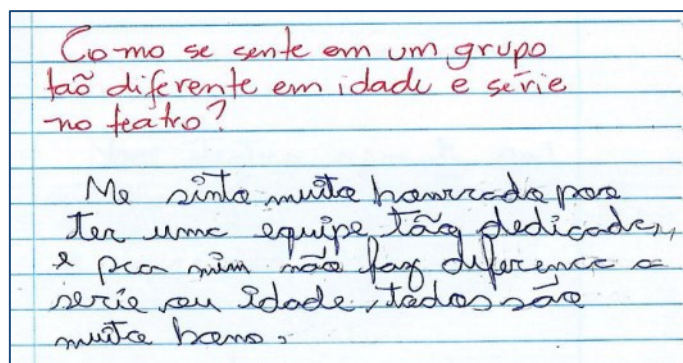 Como se sente em um grupo
taõ diferente em idade e série
no teatro?
Me sinto muito honrrado por
ter uma equipe tão dedicada,
e pra mim não faz diferença a
serie ou idade, todos são
muito bons.